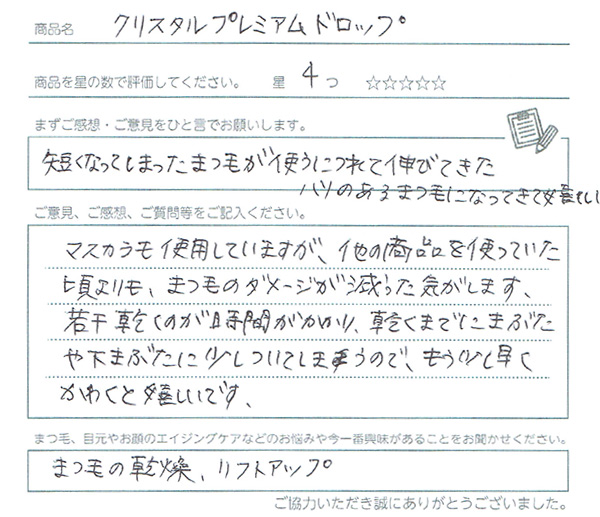 商品名 クリスタルプレミアムドロップ
商品を星の数で評価してください。 星 4つ ☆☆☆☆☆
まずご感想・ご意見をひと言でお願いします。
短くなってしまったまつ毛が使うにつれて伸びてきた
ハリのあるまつ毛になってきて嬉しい
ご意見、ご感想、ご質問等をご記入ください。
マスカラモ使用していますが、他の商品を使っていた
頃よりモ、まつ毛のダメージが減った気がします、
若干乾くのが時間がかかり、乾くまでにまぶた
や下まぶたに少しついてしまうので、もう少し早く
かわくと嬉しいです、
まつ毛、目元やお顔のエイジングケアなどのお悩みや今一番興味があることをお聞かせください。
まつ毛の乾燥、リフトアップ
ご協力いただき誠にありがとうございました。